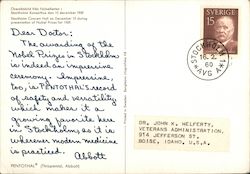 Stockholm Concert Hall on December 10 during
presentation of Nobel Prizes for 1959.
Dear Doctor:
The awarding of the
Nobel Prizes in Stockholm
is indeed an impressive
ceremony. Impressive,
too, is PENTOTHAL's record
of safety and versatility
which makes it a
growing favorite here
in Stockholm, as it is
wherever modern medicine
is practiced.
Abbott
PENTOTHAL® (Thiopental, Abbott)
SVERIGE
15
STOCKHOLM
16. 2.
60
AVG
DR. JOHN K. HELFERTY,
VETERANS ADMINISTRATION,
914 JEFFERSON ST.
BOISE, IDAHO, U.S.A.